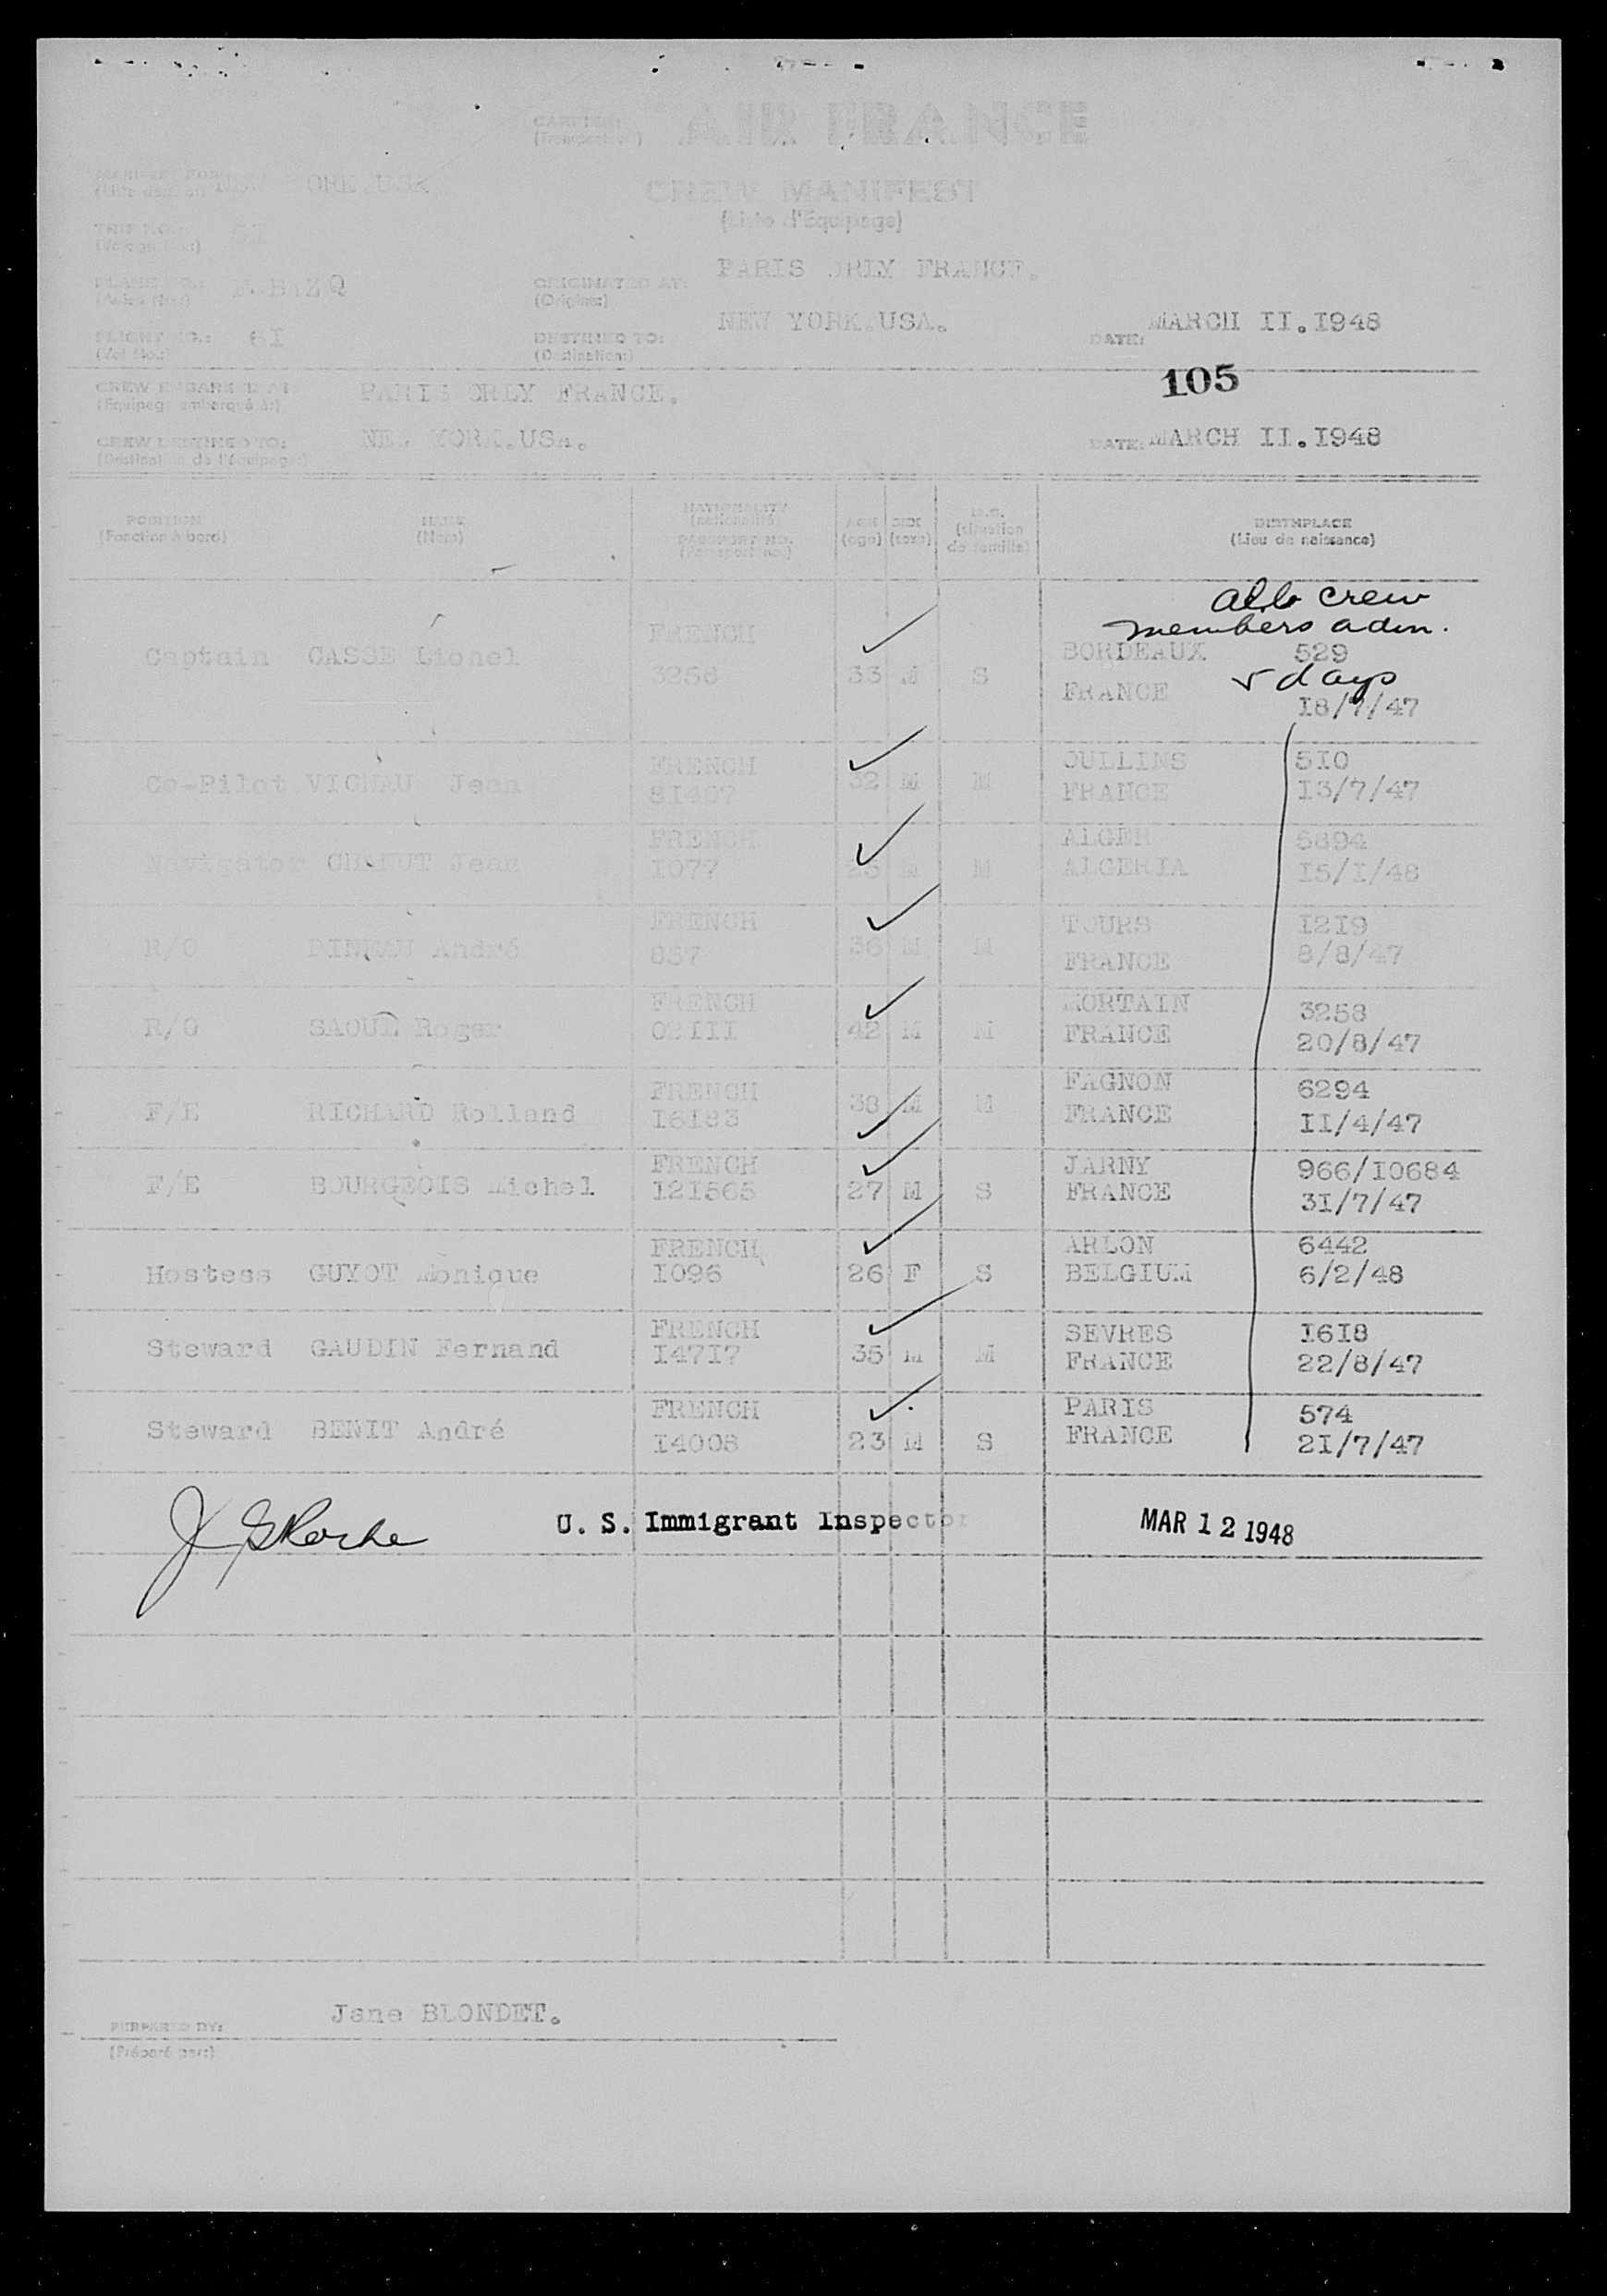 CARRIER: AIR FRANCE
(Transporteur)
ORK.USA
CREW MANIFEST
(Liste d'Equipage)
TRIP NO.:
PARIS ORLY FRANCE.
PLANE NO.: ORIGINATED AT:
(Avion No.:) (Origine:)
NEW YORK.USA. DATE: MARCH II.I948
FLIGHT NO.: 6I DESTINED TO:
(Vol No.:) (Destination:)
105
CREW EMBARKED AT: PARIS ORLY FRANCE.
(Equipage embarqué à:)
CREW DESTINED TO: NEW YORK.USA. DATE: MARCH II.I948
(Destination de l'équipage:)
POSITION NAME NATIONALITY AGE SEX M.S. BIRTHPLACE
(Fonction à bord) (Nom) (nationalité) (age) (sexe) (situation de famille) (Lieu de naissance)
PASSPORT NO.
(Passeport no.:)
all crew
members adm.
FRENCH BORDEAUX 529
Captain CASSE Lionel 3258 33 M S
5 days
FRANCE I8/7/47
FRENCH OULLINS 5I0
Co-Pilot VIGNAU Jean 8I407 32 M M FRANCE I3/7/47
FRENCH ALGER 5894
Navigator Jean I077 M M ALGERIA I5/I/48
FRENCH TOURS I2I9
R/O PINEAU André 857 36 M M FRANCE 8/8/47
FRENCH MORTAIN 3258
R/O SAOUL Roger 42 M M FRANCE 20/8/47
FRENCH FAGNON 6294
F/E RICHARD Rolland I6I83 38 M M FRANCE II/4/47
FRENCH JARNY 966/I0684
F/E BOURGEOIS Michel I2I565 27 M S FRANCE 3I/7/47
FRENCH ARLON 6442
Hostess GUYOT Monique I096 26 F S BELGIUM 6/2/48
FRENCH SEVRES I6I8
Steward GAUDIN Fernand I47I7 35 M M FRANCE 22/8/47
FRENCH PARIS 574
Steward BENIT André I4008 23 M S FRANCE 2I/7/47
U. S. Immigrant Inspector MAR 12 1948
Jane BLONDET.
PREPARED BY:
(Préparé par:)